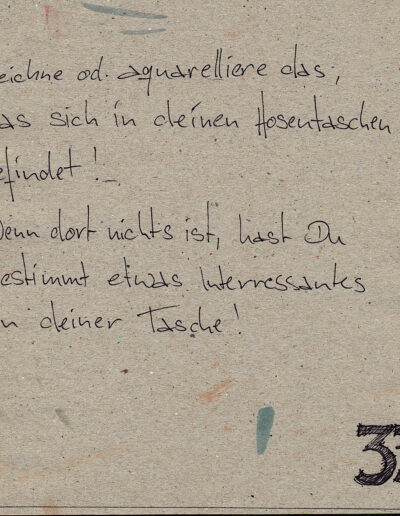 eichne od. aquarelliere das,
as sich in deinen Hosentaschen
efindet!_
Wenn dort nichts ist, hast Du
estimmt etwas Interressantes
n deiner Tasche!
3